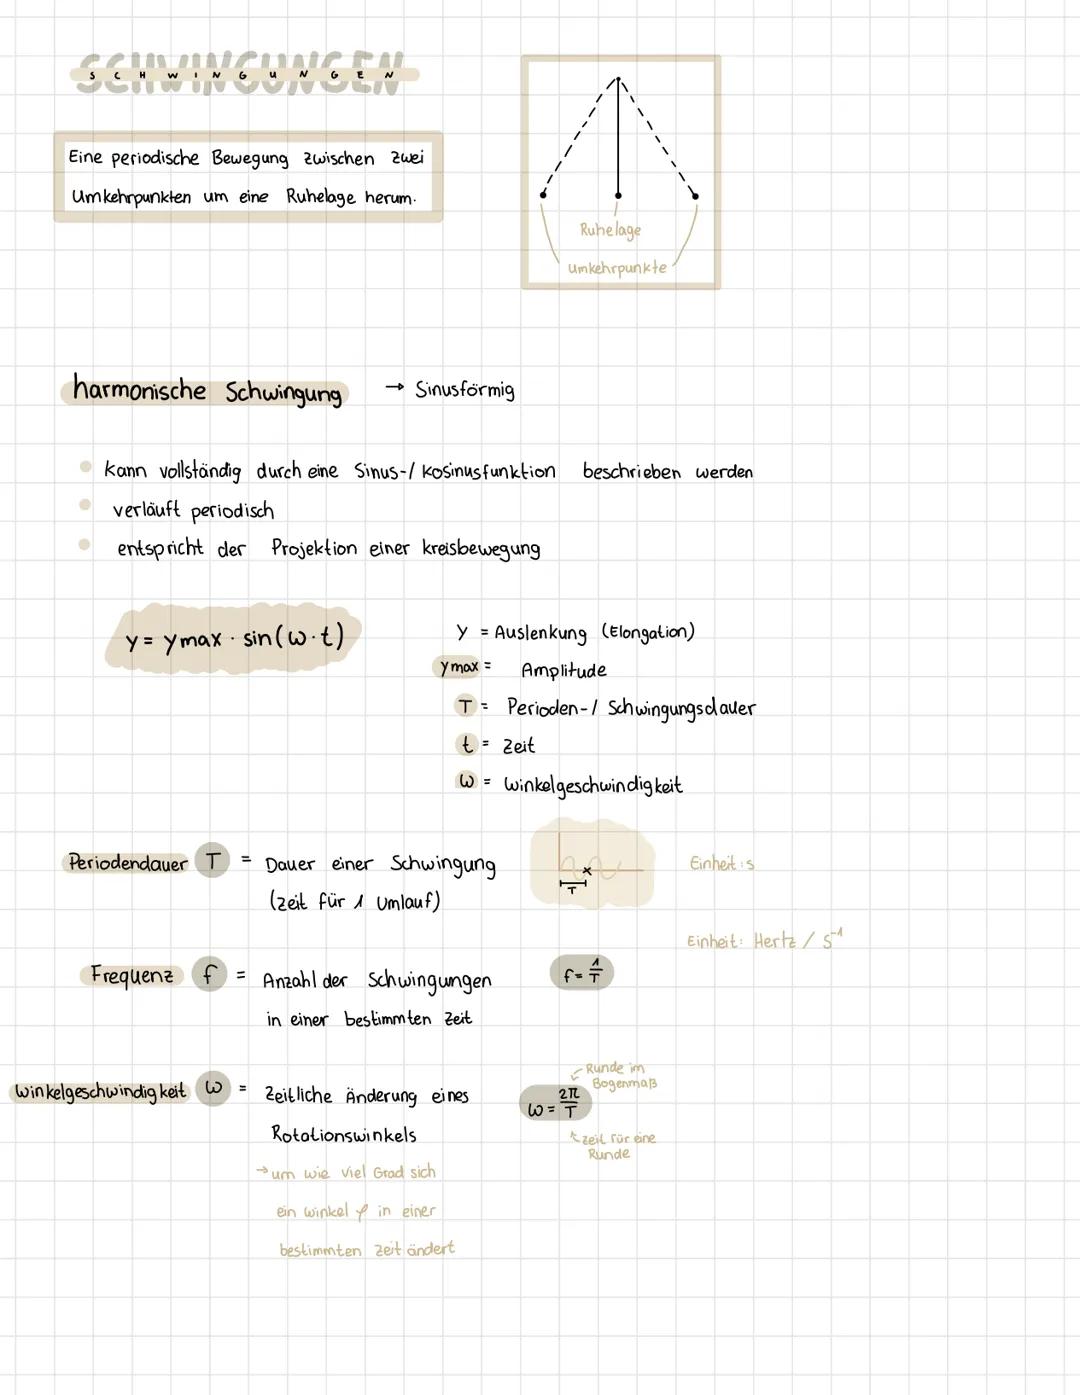 SCHWINGUNGEN
SCHWINGUNGEN
Eine periodische Bewegung zwischen zwei
Umkehrpunkten um eine Ruhelage herum.
Ruhelage
Umkehrpunkte
harmonische Schwingung → Sinusförmig
kann vollständig durch eine Sinus-/Kosinusfunktion beschrieben werden
verläuft periodisch
entspricht der Projektion einer Kreisbewegung
y = ymax · sin(ω·t)
y = Auslenkung (Elongation)
ymax = Amplitude
T = Perioden-/Schwingungsdauer
t = Zeit
ω = Winkelgeschwindigkeit
Periodendauer T = Dauer einer Schwingung
(Zeit für 1 Umlauf)
T
Einheit: s
Einheit: Hertz / s⁻¹
Frequenz f = Anzahl der Schwingungen
in einer bestimmten Zeit
f = 1/T
Winkelgeschwindigkeit ω = Zeitliche Änderung eines
Rotationswinkels
→ um wie viel Grad sich
ein Winkel φ in einer
bestimmten Zeit ändert
Runde im
Bogenmaß
ω = 2π/T
Zeit für eine
Runde